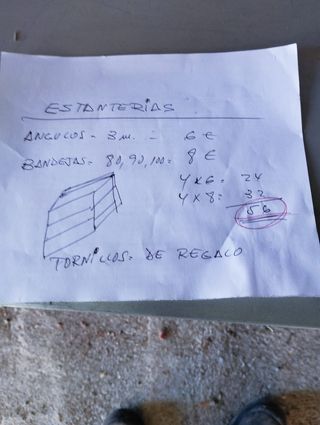 ESTANTERIAS
ANGULOS = 3 m. = 6 €
BANDEJAS = 80, 90, 100 = 8 €
4 x 6 = 24
4 x 8 = 32
56
TORNILLOS = DE REGALO